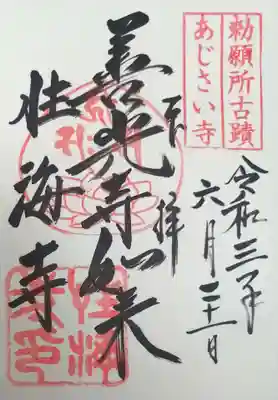 勅願所古蹟
あじさい寺
令和三年
六月二十一日
奉拝
善光寺如来
壮海寺